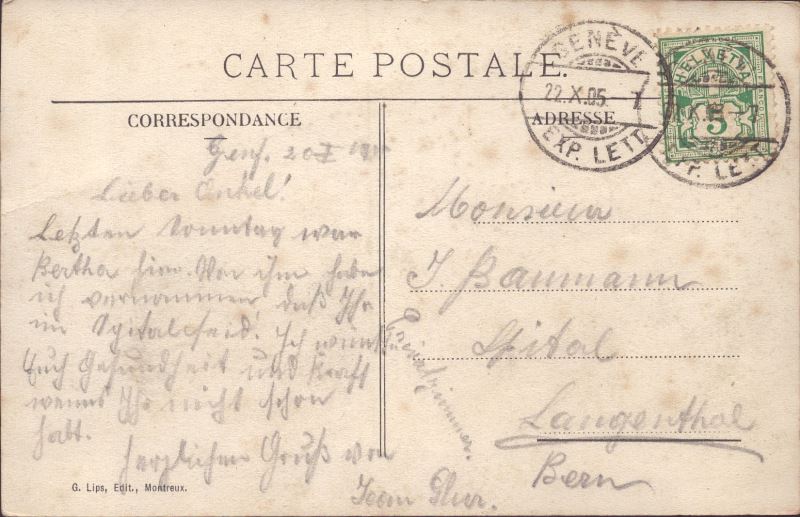 CARTE POSTALE.
CORRESPONDANCE
ADRESSE
GENÈVE
22.X.05. 1
EXP. LETT.
HELVETIA
5
Genf. 20 X
Lieber Onkel!
Letzten Sonntag war
Bertha hier. Von ihm habe
ich vernommen, daß Ihr
im Spital seid. Ich wünsche
Euch Gesundheit und Kraft
wenns Ihr nicht schon
habt.
Herzlichen Gruß von
Monsieur
J. Baumann
Spital
Langenthal
Bern
G. Lips, Edit., Montreux.